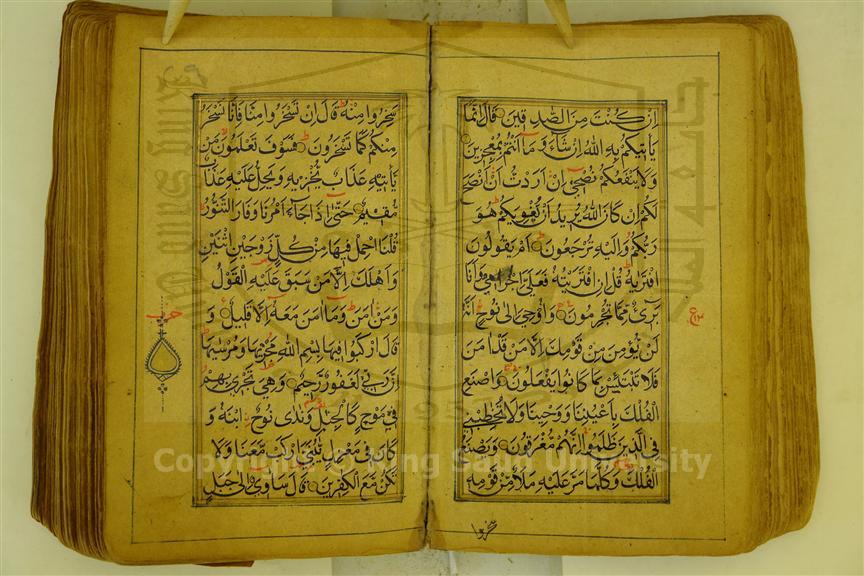 ان كنت من الصدقين قال انما
ياتيكم به الله ان شاء وما انتم بمعجزين
ولا ينفعكم نصحي ان اردت ان انصح
لكم ان كان الله يريد ان يغويكم هو
ربكم واليه ترجعون ام يقولون
افتريه قل ان افتريته فعلي اجرامي وانا
بريء مما تجرمون واوحي الى نوح انه
لن يؤمن من قومك الا من قد امن
فلا تبتئس بما كانوا يفعلون واصنع
الفلك باعيننا ووحينا ولا تخاطبني
في الذين ظلموا انهم مغرقون ويصنع
الفلك وكلما مر عليه ملا من قومه
سخروا
سخروا منه قال ان تسخروا منا فانا نسخر
منكم كما تسخرون فسوف تعلمون من
ياتيه عذاب يخزيه ويحل عليه عذاب
مقيم حتى اذا جاء امرنا وفار التنور
قلنا احمل فيها من كل زوجين اثنين
واهلك الا من سبق عليه القول
ومن امن وما امن معه الا قليل و
قال اركبوا فيها بسم الله مجريها ومرسيها
ان ربي لغفور رحيم وهي تجري بهم
في موج كالجبال ونادى نوح ابنه و
كان في معزل يبني اركب معنا ولا
تكن مع الكفرين قال ساوي الى جبل
حزب
Copyright © King Saud University